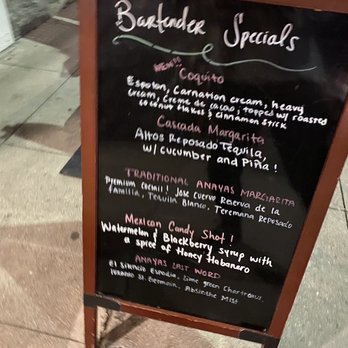 Bartender Specials
NEW!!!
Coquito
Espolon, Carnation cream, heavy
cream, creme de cacao, topped w/ roasted
coconut flakes & cinnamon stick
Cascada Margarita
Altos Reposado Tequila,
w/ cucumber and Piña!
TRADITIONAL ANAYAS MARGARITA
Premium Cocual! Jose Cuervo Reserva de la
familia, Tequila Blanco, Teremana Reposado
Mexican Candy Shot!
Watermelon & Blackberry syrup with
a spice of Honey Habanero
ANAYAS LAST WORD
El Silencio Espadin, Lime green Chartreuse,
St. Germain, Absinthe Mist